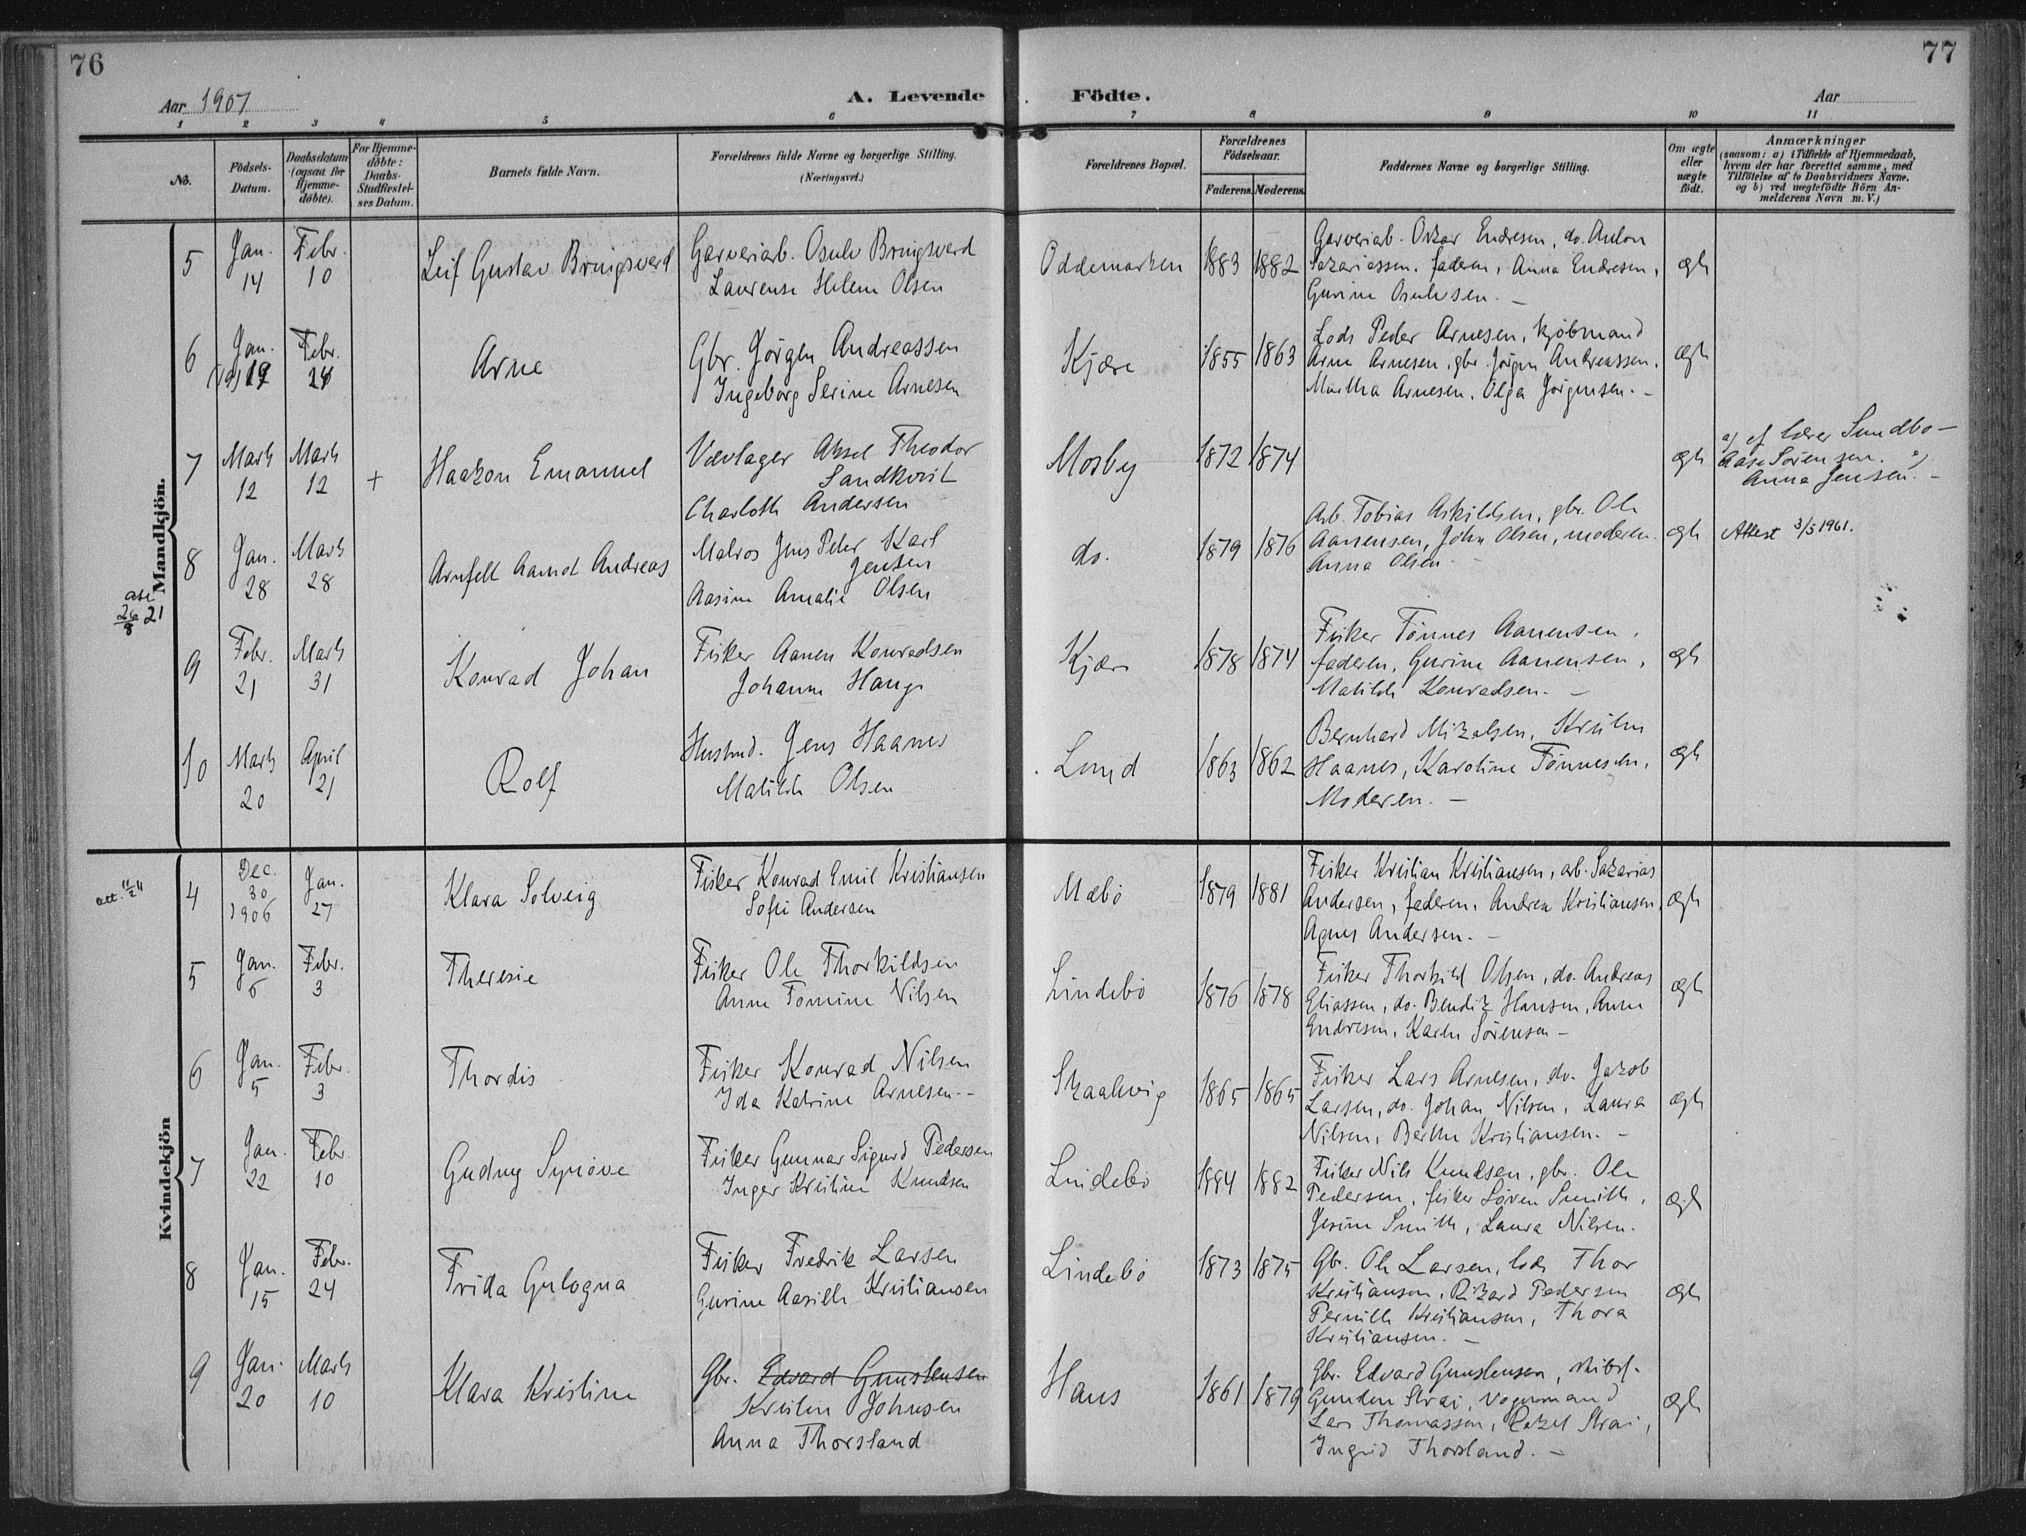 76
77
Aar 1907
A. Levende
Födte.
Aar
1 2 3 4 5 6 7 8 9 10 11
No.
Födsels-
Datum.
Daabsdatum
(ogsaa for
Hjemme-
døbte).
For Hjemme-
döbte:
Daabs-
Stadfæstel-
ses Datum.
Barnets fulde Navn.
Forældrenes fulde Navne og borgerlige Stilling.
(Næringsvei.)
Forældrenes Bopæl.
Forældrenes
Födselsaar.
Faderens. Moderens.
Faddernes Navne og borgerlige Stilling.
Om ægte
eller
uægte
födt.
Anmærkninger
(saasom: a) i Tilfælde af Hjemmedaab,
hvem der har forrettet samme, med
Tilföielse af to Daabsvidners Navne,
og b) ved uægtefödte Börn An-
melderens Navn m. V.)
Mandkjön.
5
Jan.
14
Febr.
10
Leif Gustav Bringsverd
Garveriarb. Osulv Bringsverd
Laurense Helene Olsen
Oddemarken
1883 1882
Garveriarb. Oskar Endresen, do. Anton
Sakariassen, faderen, Anna Endresen,
Gurine Osulvsen. —
ægte
6
Jan.
Febr.
24
Arne
Gbr. Jørgen Andreassen
Ingeborg Serine Arnesen
Kjære
1855 1863
Lods Peder Arnesen, kjøbmand
Arne Arnesen, gbr. Jörgen Andreassen,
Martha Arnesen, Olga Jørgensen. —
ægte
7
Marts
12
Marts
12
+
Haakon Emanuel
Vævlager Aksel Theodor
Sandkvist
Charlotte Andersen
Mosby
1872 1874
ægte
a) af lærer Sundbo —
Aase Sørensen.
Anna Jensen. —
8
Jan.
28
Marts
28
Arnfelt Aamot Andreas
Matros Jens Peter Karl
Jensen
Aasine Amalie Olsen
do.
1879 1876
Arb. Tobias Askildsen, gbr. Ole
Aanensen, John Olsen, moderen
Anna Olsen. —
ægte
Attest 3/5 1961.
att
26/8 21
9
Febr.
21
Marts
31
Konrad Johan
Fisker Aanen Konradsen
Johanne Hauge
Kjære
1878 1874
Fisker Tönnes Aanensen,
faderen, Gurine Aanensen,
Matilde Konradsen. —
ægte
10
Marts
20
April
21
Rolf
Husmd. Jens Haanes
Matilde Olsen
Lund
1863 1862
Bernhard Mikalsen, Kristen
Haanes, Karoline Tönnesen,
Moderen. —
ægte
Kvindekjön
att. 11/2 11
4
Dec.
30
1906
Jan.
27
Klara Solveig
Fisker Konrad Emil Kristiansen
Sofie Andersen
Mæbø
1879 1881
Fisker Kristian Kristiansen, arb. Sakarias
Andersen, faderen, Andrea Kristiansen,
Agnes Andersen. —
ægte
5
Jan.
6
Febr.
3
Theresie
Fisker Ole Thorkildsen
Anne Tomine Nilsen
Lindebø
1876 1878
Fisker Thorkild Olsen, do. Andreas
Eliassen, do. Bendix Hansen, Anne
Endresen, Karen Sørensen —
ægte
6
Jan.
5
Febr.
3
Thordis
Fisker Konrad Nilsen
Ida Katrine Arnesen. —
Skaalevig
1865 1865
Fisker Lars Arnesen, do. Jakob
Larsen, do. Johan Nilsen, Laura
Nilsen, Berthe Kristiansen. —
ægte
7
Jan.
22
Febr.
10
Gudny Synöve
Fisker Gunnar Sigurd Pedersen
Inger Kristine Knudsen
Lindebø
1884 1882
Fisker Nils Knudsen, gbr. Ole
Pedersen, fisker Sören Smith,
Jesine Smith, Laura Nilsen.
ægte
8
Jan.
15
Febr.
24
Frida Gulogna
Fisker Fredrik Larsen
Gurine Aasille Kristiansen
Lindebø
1873 1875
Gbr. Ole Larsen, lods Thor
Kristiansen, Rikard Pedersen
Pernille Kristiansen, Thora
Kristiansen. —
ægte
9
Jan.
20
Marts
10
Klara Kristine
Gbr. Edvard Gunstensen
Kristen Johnsen
Anna Thorsland
Haus
1861 1879
Gbr. Edvard Gunstensen, skibsf.
Gunden Strai, vognmand
Lars Thomassen, Rakel Strai,
Ingrid Thorsland. —
ægte